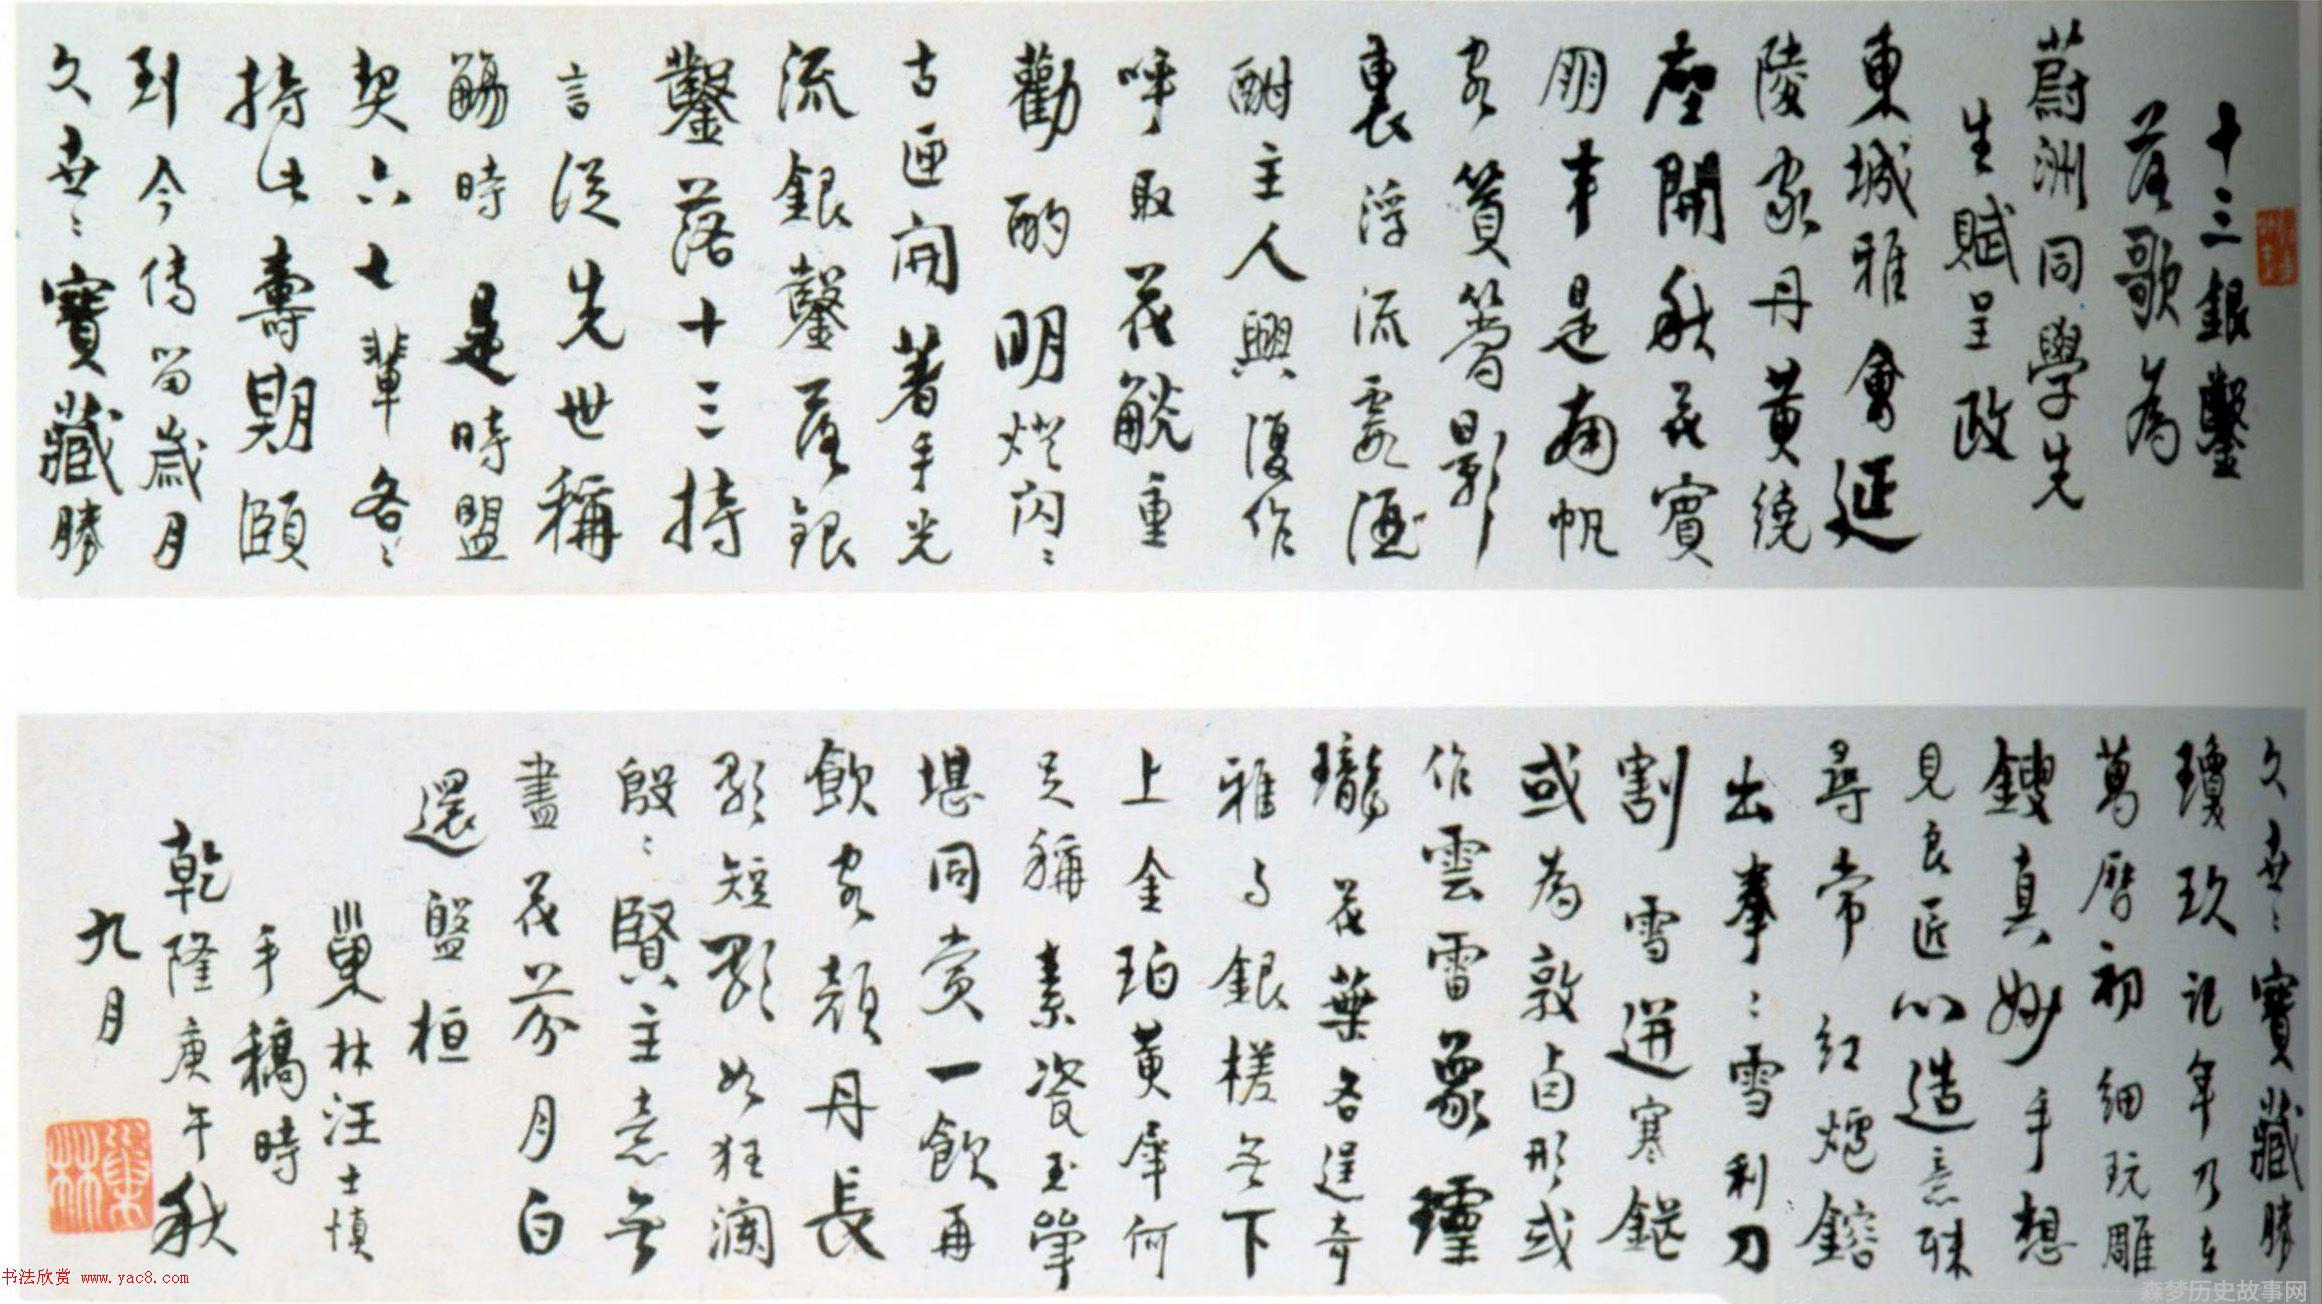 十三銀鑿
落歌為
蔚洲同學先
生賦呈政
東城雅會延
陵家丹黄繞
座開秋花賓
朋半是南帆
客篔簹影
裏浮流霞酒
酣主人興復作
呼取花觥重
勸酌明燈閃〻
古匣開著手光
流銀鑿落銀
鑿落十三持
言從先世稱
觴時是時盟
契六七輩各〻
持此壽期頤
到今傳留歲月
久世〻寶藏勝
久世〻寶藏勝
瓊玖記年乃在
萬曆初細玩雕
鎪真妙手想
見良匠心造意殊
尋常紅爐鎔
出拳〻雪利刀
割雪迸寒鋩
或為敦卣形或
作雲雷象
瓏花葉各逞奇
雅与銀槎無下
上金珀黄犀何
足稱素瓷玉斝
堪同賞一飲再
飲客顏丹長
歌短歌如狂瀾
殷〻賢主意無
盡花芬月白
還盤桓
巢林汪士慎
手稿時
乾隆庚午秋
九月
巢林
书法欣赏 www.yac8.com
森梦历史故事网